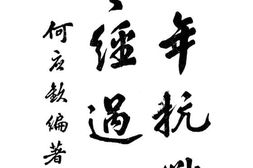 年抗
經過
何应欽編著